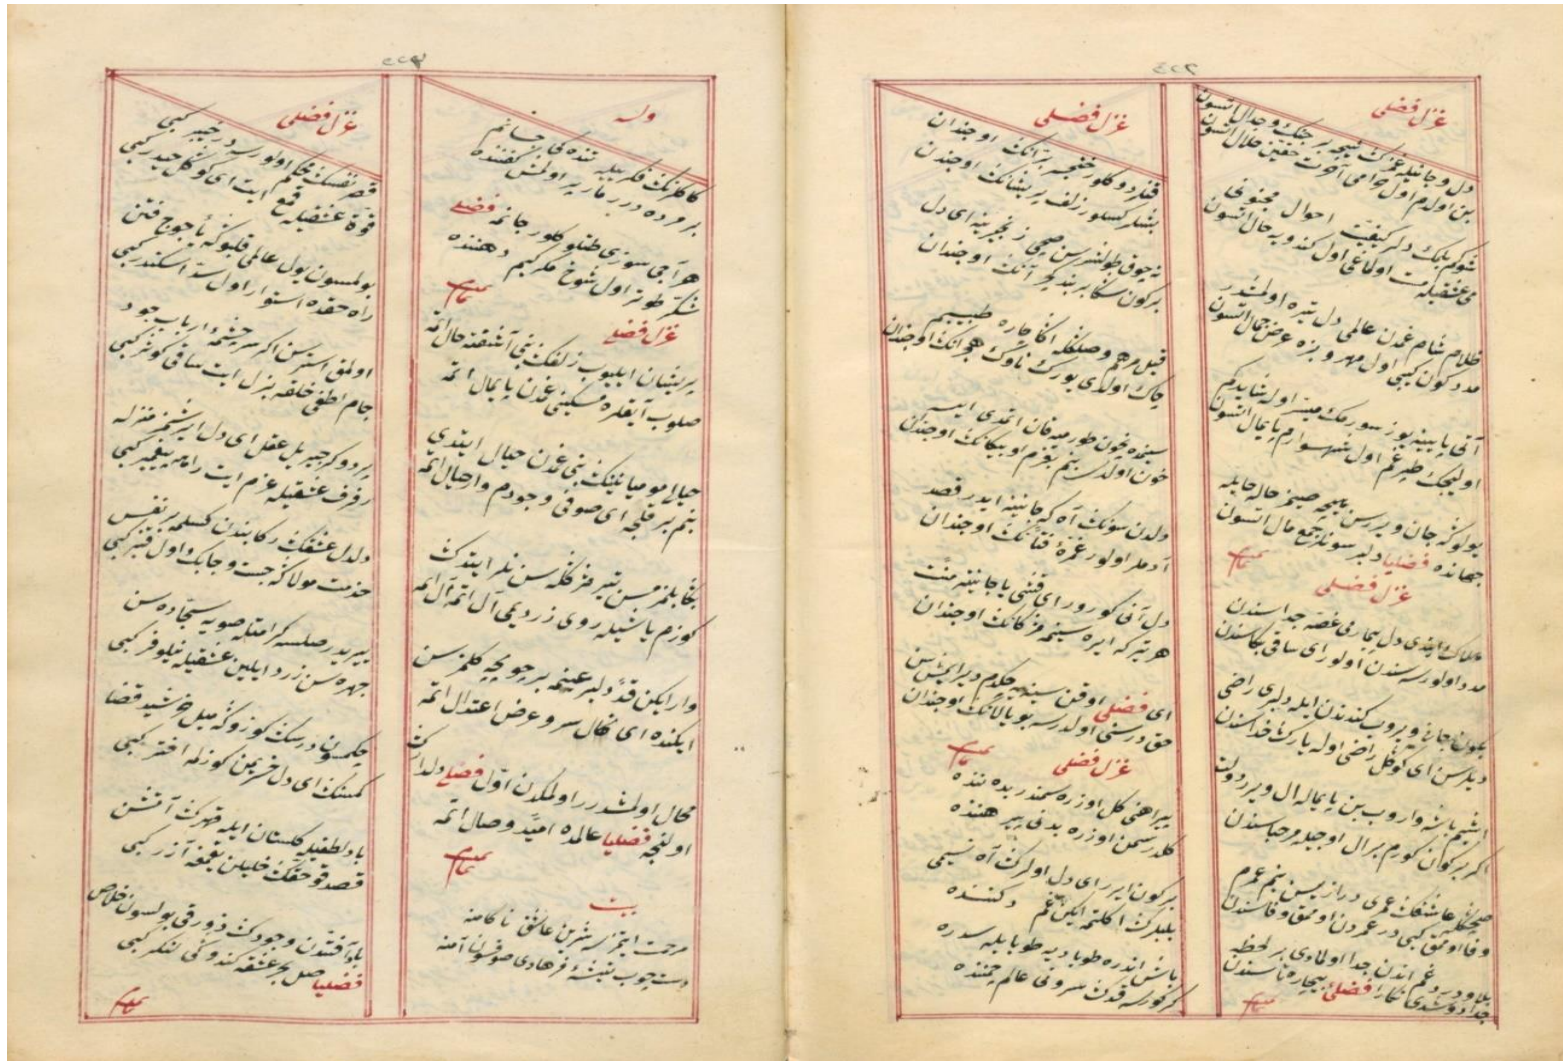 ٤٢٢
غزل فضلی
دل و جانیله عزمك نیجه بر جنك و جدال اتسون
بن اولدم اول حرامی آخرت حقین حلال اتسون
شو کم بلك دلر کیفیت احوال مجنونی
می عشقیله مست اولماغی اول کندویه حال اتسون
ظلام شام غمدن عالمی دل تیره اولمشدر
مدد کون کیبی اول مهرو بزه عرض جمال اتسون
آتی پایینه یوز سورمك میسر اولمیایدم
اولیجك طپرغم اول شهسوارم پایمال اتسون
یولوکه جان ویررسن نیجه صیغم حاله جایله
جهانده فضلیا دلبر سونلر جمع مال اتسون
تمام
غزل فضلی
هلاك ایتدی دل بیماری غصه جداسندن
مدد اولورسه سندن اولور ای ساقی بکا سندن
بکون جانی ویروب کندندن ایله دلبری راضی
دیلرسن ای کوکل راضی اوله یارك خداسندن
ایشیم باشه واروب بن پایماله ال ویرر دولت
اکر بر کون کورم بر ال اوجیله مرحباسندن
صچك کبی عاشقك عمری دراز ایسن بنم عمرم
وفا اومق کبی در عمردن اومق وفاسندن
بلا و درد غم اندن جدا اولمادی بر لحظه
جدا دوشدی نکارا فضلئ بیچاره تا سندن
تمام
غزل فضلی
قچندر دوکلور خنجر برّانك اوجندان
بشلر کسلور زلف پریشانك اوجندن
نه چوق طولنسرسن صچی زنجیرینه ای دل
بر کون سکا بر بند کچر آنك اوجندان
قیل مرهم وصلکله اکا چاره طبیبیم
چاك اولدی یورك ناوك هجرانك اوجندان
سینمده نیچون طورمیه قان اتمدی ایسه
خون اولدسه بنم بغرم او پیکانك اوجندن
ولدن سونك آه که جانینه ایدر قصد
آدملر اولور غمزه فتانك اوجندان
دل آنی کورور ای قشی یا جانینه منت
هر تیر که ایره سینمه مژکانك اوجندان
ای فضلی اوقن سینه یه چکدم دیر ایمش سن
حق درستی اولدرسه بو یالانك اوجندان
تمام
غزل فضلی
پیراهنی کل اوزره سمندر بدننده
کلدر سمن اوزره بدنی پیرهننده
بر کون ایرر ای دل اولرك آه نسیمی
بلبلرك اکلتمه ایکن غم دکننده
باش اندره طوبا دیه طوبا بیله سدره
کر کورسه قدك سرونی عالم چمننده
٤٢٣
وله
کاکلرینك فکریله تنده کی جانم
بر مرده در بر ماریه اولمش کفننده
هر آجی سوزی طتلو کلور جانمه فضلی
شکر طوتر اول شوخ مکر کیم دهننده
تمام
غزل فضلی
پریشان ایلیوب زلفك بنی آشفته حال اتمه
صلوب آیقلره مسکینی غمدن پایمال اتمه
خیال مو میانینك بنی غمدن خیال ایتدی
بنم بر قلجه ای صوفی وجودم وار خیال اتمه
بکا بلمزمسن تیر مژکله سن نلر ایتدك
کوزم یاشیله روی زردیمی آل اتمه آل اتمه
وار ایکن قدّ دلبر عینمه بر چوبجه کلمزسن
ایکنده ای نخال سرو عرض اعتدال اتمه
محال اولمشدرر اولمکدن اوّل فضلی دلدارك
اولنجه فضلیا عالمده امیّد وصال اتمه
تمام
بیت
مرحمت ایتمز سه شیرین عاشق ناکامنه
دست چوب تیشهٔ فرهادی صوقسون آمنه
غزل فضلی
قصر نفسك محکم اولورسه در خیبر کیبی
قوّة عشقیله قمع ایت ای کوکل حیدر کیبی
بولمسون یول عالمی قلبوکه یأجوج فتن
راه حقده استوار اول سدّ اسکندر کیبی
اولمق استرسن اکر سرچشمهٔ ارباب جود
جام لطفی خلقه بذل ایت ساقی کوثر کیبی
پیرو کر جبریل عقل ای دل ایرشمز منزله
رفرف عشقیله عزم ایت راهه پیغمبر کیبی
دلدل عشقك رکابندن کسلمه بر نفس
خدمت مولاکه جست و چابك اول قنبر کیبی
پیریدر صلسه کر امتله صویه سجّاده سن
چهره سن زرد ایلین عشقیله نیلوفر کیبی
چکمسون درسك کوزوکه میل خورشید قضا
کمسنك ای دل شریمن کوزلمه اختر کیبی
باد لطفیله کلستان ایله قهرك آتشن
قصد قوحقك خلیلن یقمغه آزر کیبی
باد آفتدن وجودك زورقی بولسون خلاص
فضلیا صل بحر عشقه کندوکی لنکر کیبی
تمام